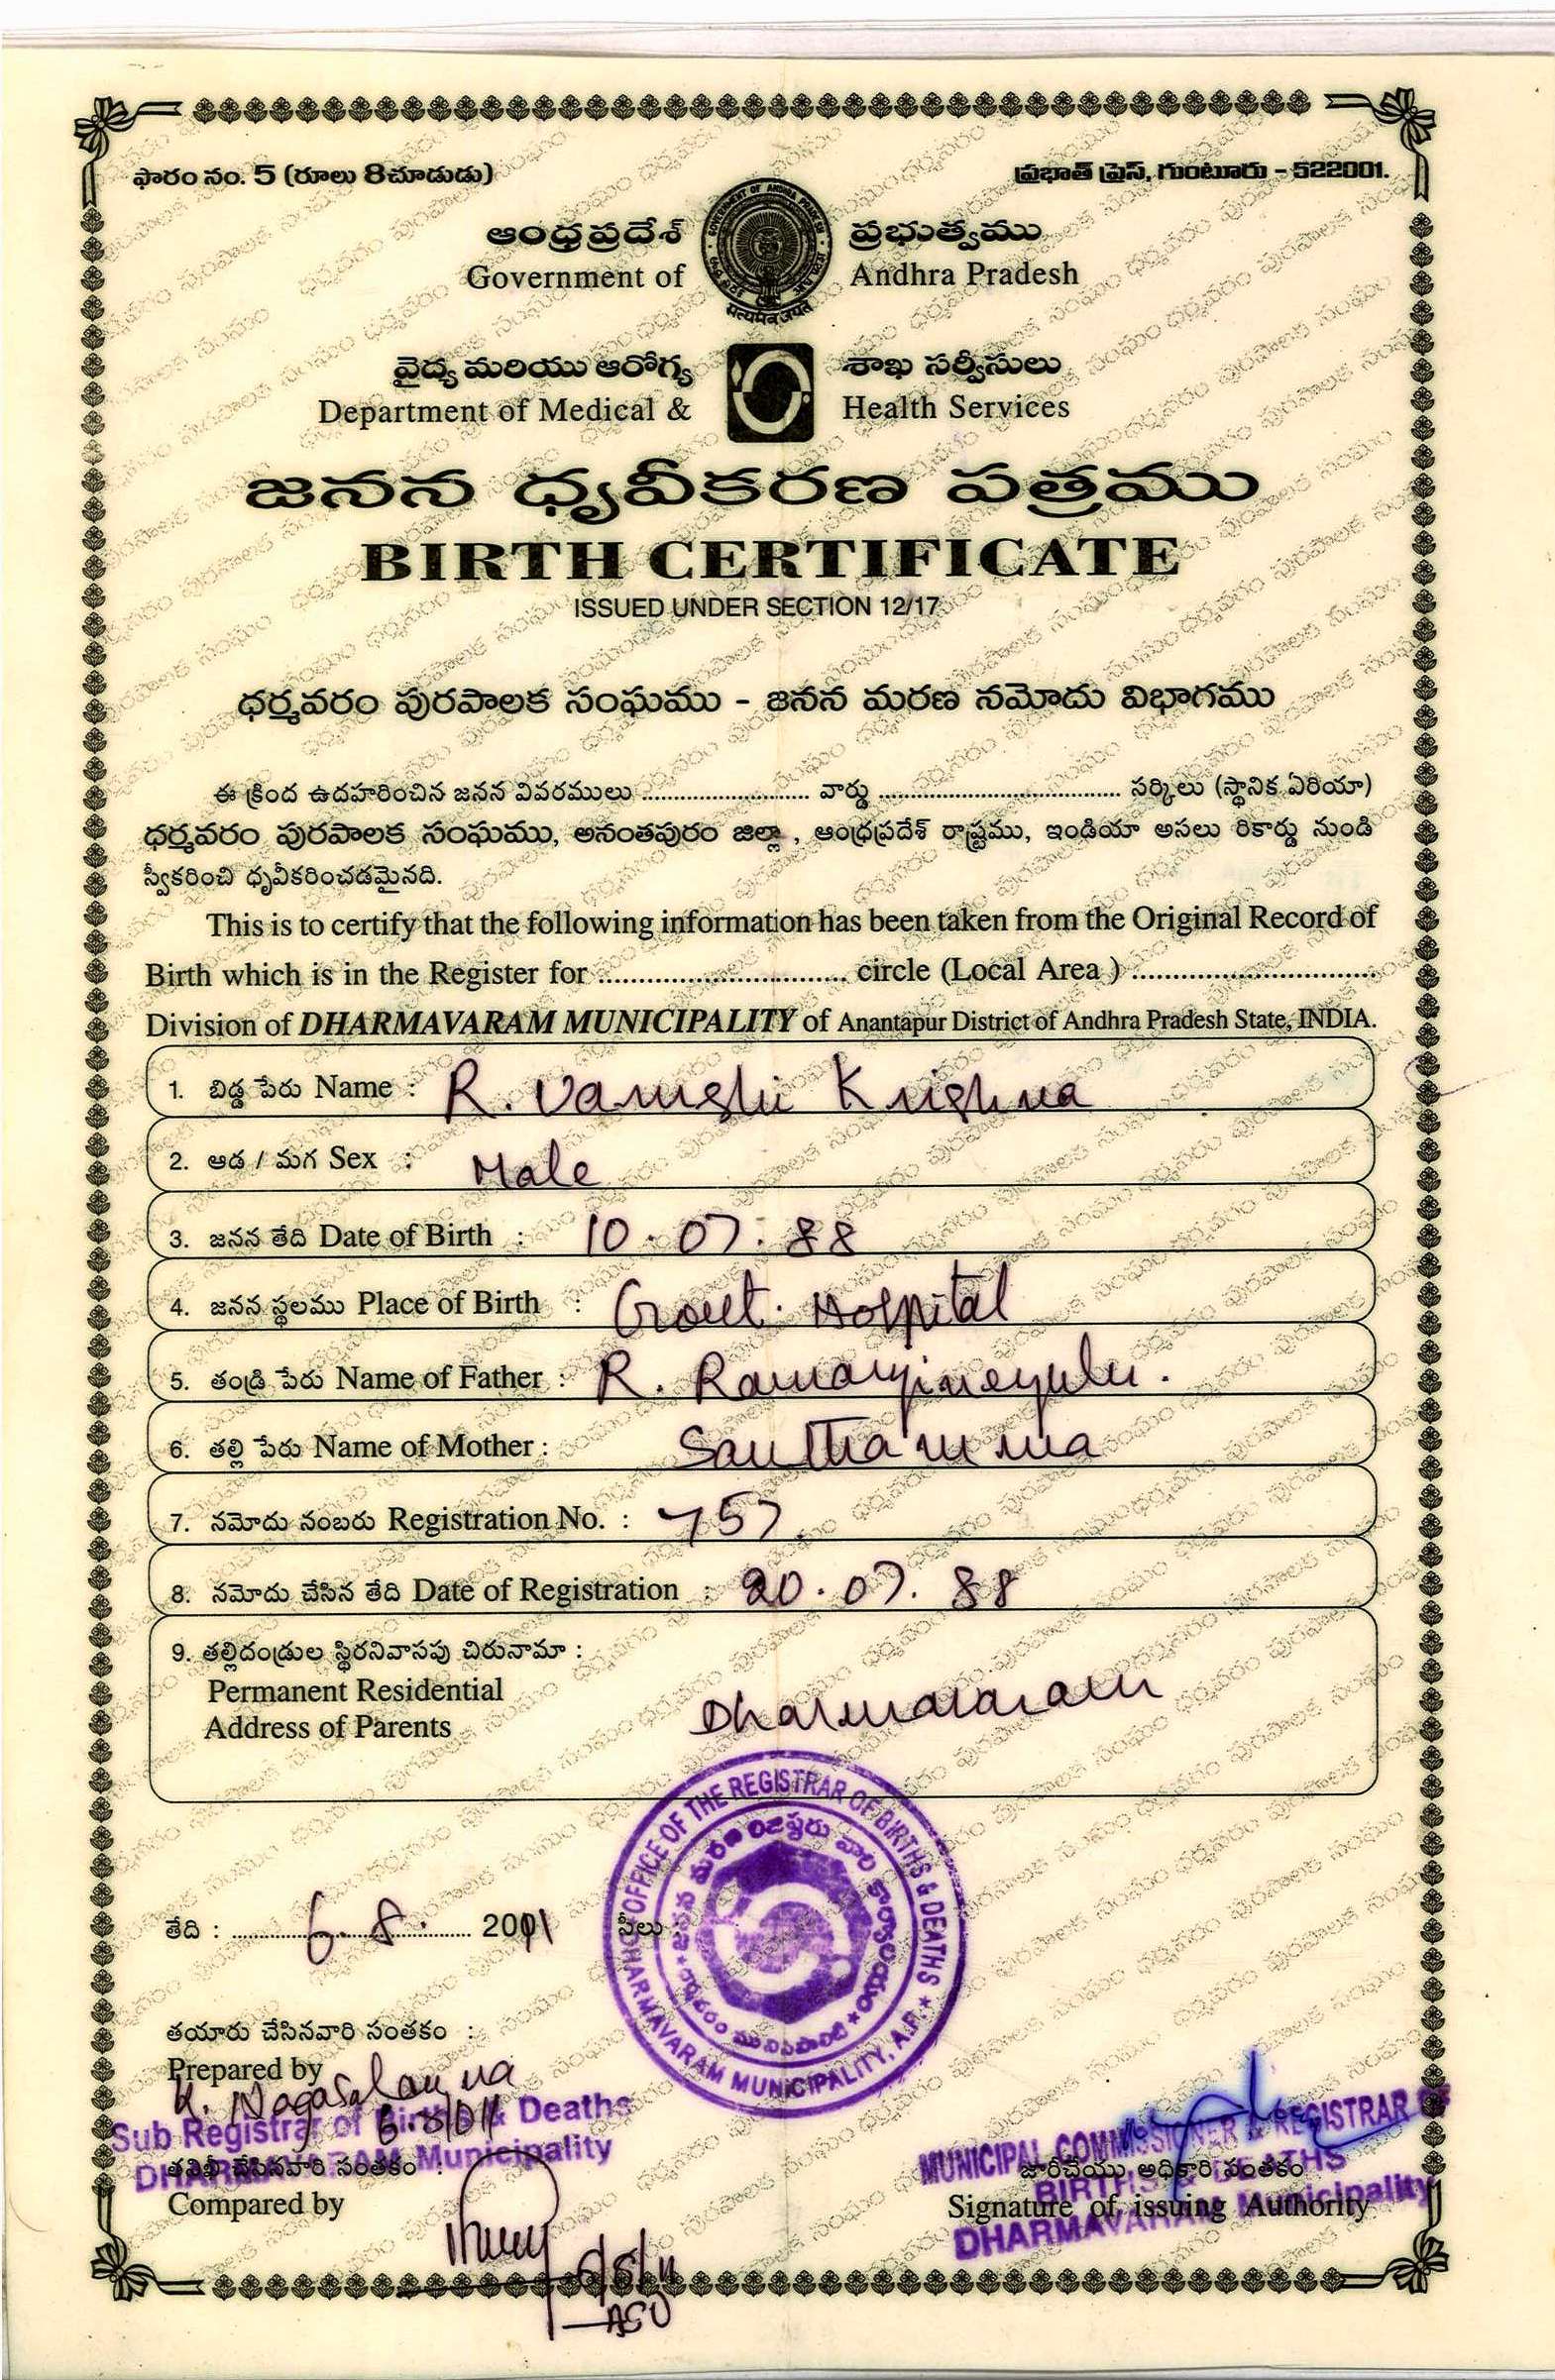 ఫారం నం. 5 (రూలు 8చూడుడు)
ప్రభాత్ ప్రెస్, గుంటూరు - 522001.
ఆంధ్రప్రదేశ్ ప్రభుత్వము
Government of Andhra Pradesh
సత్యమేవ జయతే
వైద్య మరియు ఆరోగ్య శాఖ సర్వీసులు
Department of Medical & Health Services
జనన ధృవీకరణ పత్రము
BIRTH CERTIFICATE
ISSUED UNDER SECTION 12/17
ధర్మవరం పురపాలక సంఘము - జనన మరణ నమోదు విభాగము
ఈ క్రింద ఉదహరించిన జనన వివరములు .............................. వార్డు .......................................... సర్కిలు (స్థానిక ఏరియా)
ధర్మవరం పురపాలక సంఘము, అనంతపురం జిల్లా, ఆంధ్రప్రదేశ్ రాష్ట్రము, ఇండియా అసలు రికార్డు నుండి
స్వీకరించి ధృవీకరించడమైనది.
This is to certify that the following information has been taken from the Original Record of
Birth which is in the Register for .................................. circle (Local Area ) .................................
Division of DHARMAVARAM MUNICIPALITY of Anantapur District of Andhra Pradesh State, INDIA.
1. బిడ్డ పేరు Name : R. Vamshi Krishna
2. ఆడ / మగ Sex : Male
3. జనన తేది Date of Birth : 10.07.88
4. జనన స్థలము Place of Birth : Govt. Hospital
5. తండ్రి పేరు Name of Father : R. Ramanjineyulu.
6. తల్లి పేరు Name of Mother : Santhamma
7. నమోదు నంబరు Registration No. : 757
8. నమోదు చేసిన తేది Date of Registration : 20.07.88
9. తల్లిదండ్రుల స్థిరనివాసపు చిరునామా :
Permanent Residential
Address of Parents
Dharmavaram
OFFICE OF THE REGISTRAR OF BIRTHS & DEATHS
DHARMAVARAM MUNICIPALITY, A.P.
తేది : 6.8. 2011
సీలు
తయారు చేసినవారి సంతకం :
Prepared by
6/8/011
Sub Registrar of Births & Deaths
DHARMAVARAM Municipality
తనిఖీ చేసినవారి సంతకం :
Compared by
6/8/11
MUNICIPAL COMMISSIONER & REGISTRAR OF
BIRTHS & DEATHS
DHARMAVARAM Municipality
జారీచేయు అధికారి సంతకం
Signature of issuing Authority